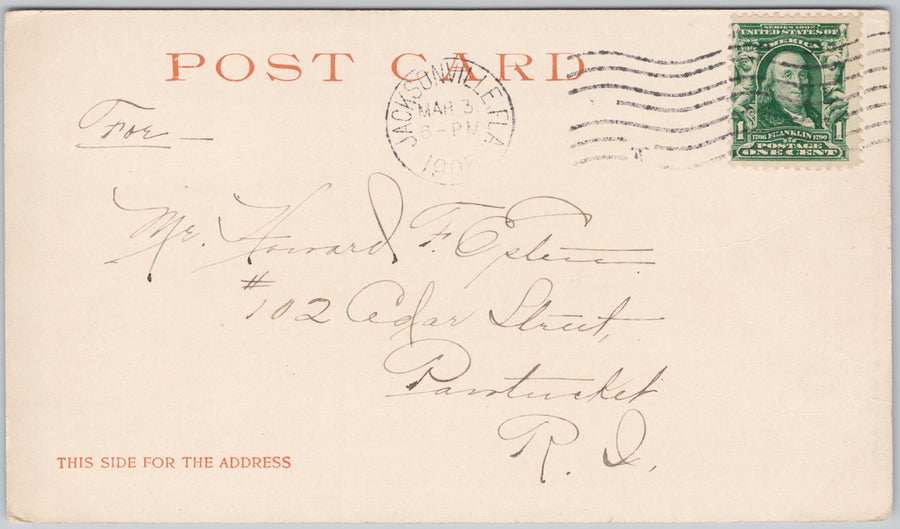 POST CARD
JACKSONVILLE, FLA
MAR 3
6-PM
SERIES 1902
UNITED STATES OF
AMERICA
1 1706 FRANKLIN 1790 1
POSTAGE
ONE CENT
For
Mr. Howard F.
#102 Cedar Street,
Pawtucket
R. I.
THIS SIDE FOR THE ADDRESS